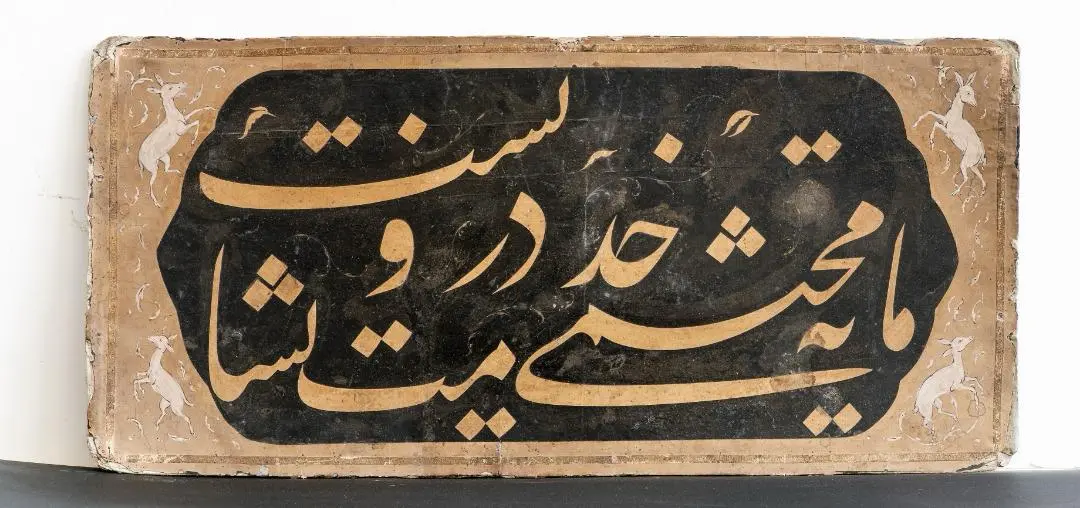 مایهٔ محتشمی خدمت درویشانست